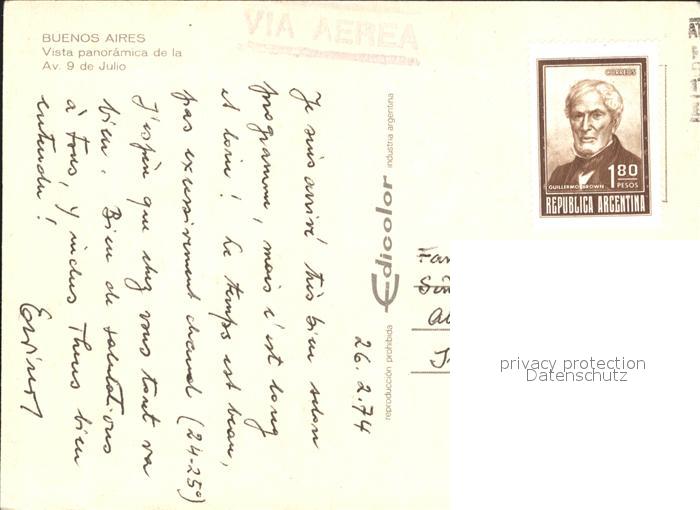 BUENOS AIRES
Vista panorámica de la
Av. 9 de Julio
VIA AEREA
26.2.74
Je suis arrivé très bien selon
programme, mais c'est long
et loin! Le temps est beau,
pas excessivement chaud (24-25°)
J'espère que chez vous tout va
bien. Bien de salutations
à tous, y inclus Theus bien
entendu!
Edicolor industria argentina
reproducción prohibida
CORREOS
GUILLERMO BROWN
1.80
PESOS
REPUBLICA ARGENTINA
Fam
privacy protection
Datenschutz